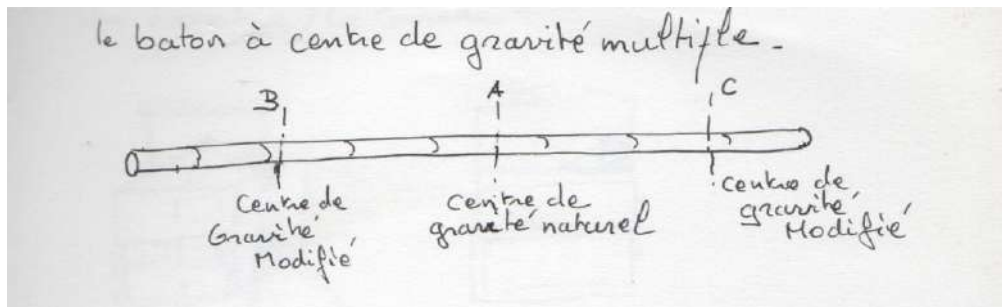 le baton à centre de gravité multiple.
B
A
C
Centre de
Gravité
Modifié
centre de
gravité naturel
centre de
gravité
Modifié